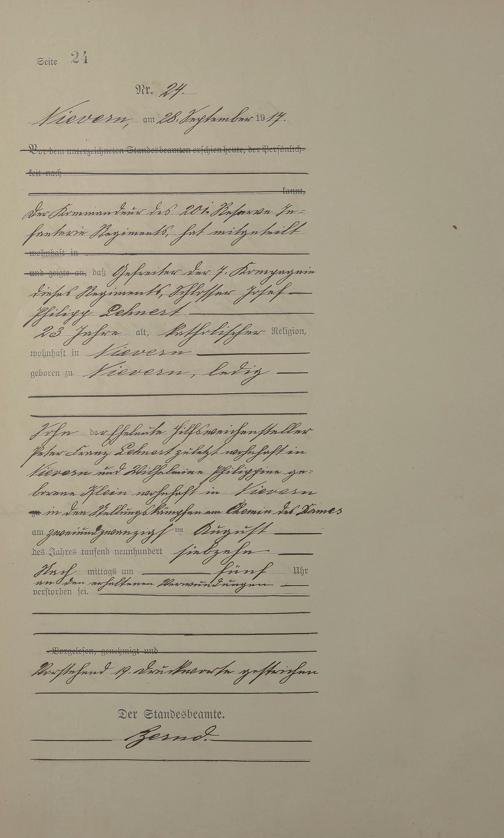 Seite 24
Nr. 24.
Nievern, am 28. September 1917.
Vor dem unterzeichneten Standesbeamten erschien heute, der Persönlich-
keit nach
kannt,
Der Kommandeur des 201. Reserve In-
fanterie Regiments, hat mitgeteilt
wohnhaft in
und zeigte an, daß Gefreiter der 7. Kompagnie
dieses Regiments, Schlosser Josef
Philipp Lehnert
23 Jahre alt, katholischer Religion,
wohnhaft in Nievern
geboren zu Nievern, ledig
Sohn der Eheleute Hilfsweichensteller
Peter Franz Lehnert zuletzt wohnhaft in
Nievern und Wilhelmine Philippine ge-
borene Klein wohnhaft in Nievern
in den Stellungskämpfen am Chemin des Dames
am zweiundzwanzigst en August
des Jahres tausend neunhundert siebzehn
Nach mittags um fünf Uhr
an den erhaltenen Verwundungen
verstorben sei.
Vorgelesen, genehmigt und
Vorstehend 19 Druckworte gestrichen
Der Standesbeamte.